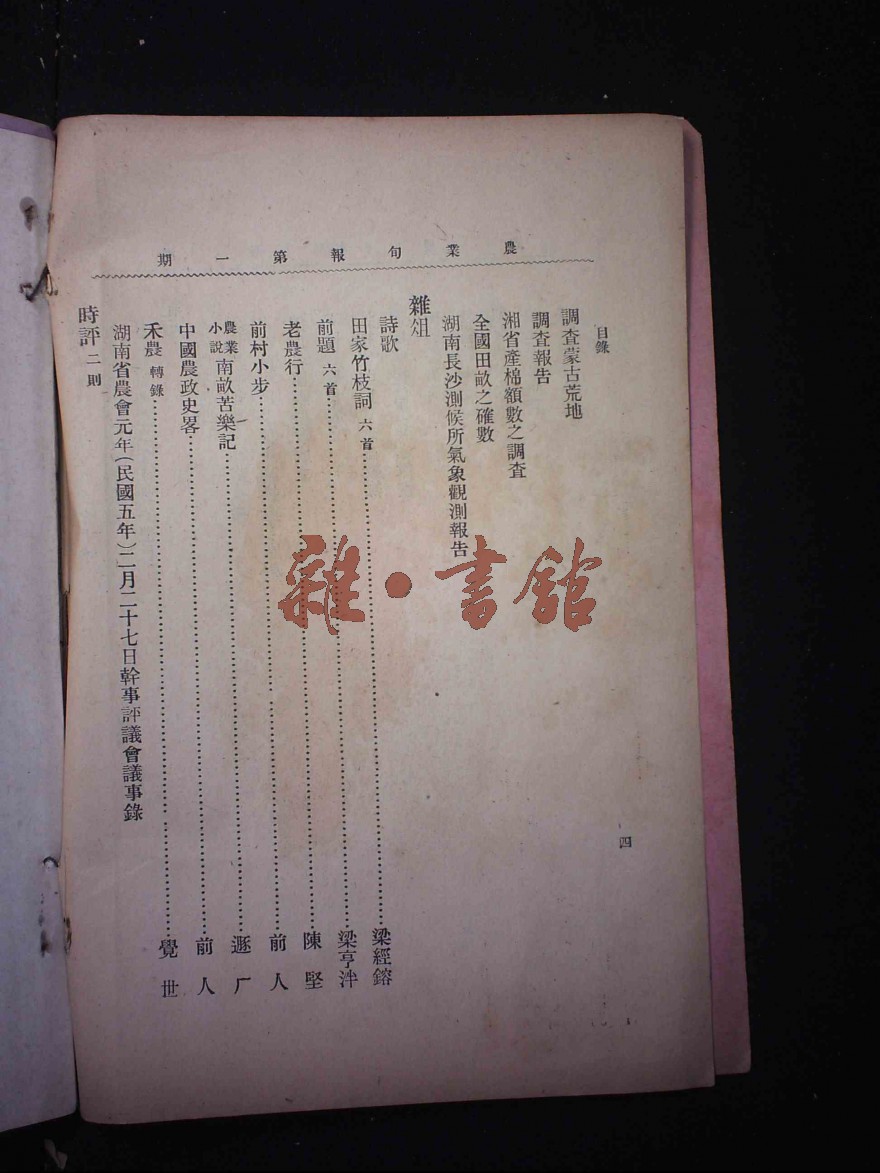 農業旬報第一期
目錄
四
調查蒙古荒地
調查報告
湘省產棉額數之調查
全國田畝之確數
湖南長沙測候所氣象觀測報告
雜俎
詩歌
田家竹枝詞 六首……梁經鎔
前題 六首……梁亨泮
老農行……陳堅
前村小步……前人
農業小說 南畝苦樂記……遯厂
中國農政史畧……前人
禾農 轉錄……覺世
湖南省農會元年(民國五年)二月二十七日幹事評議會議事錄
時評 二則
雜·書館